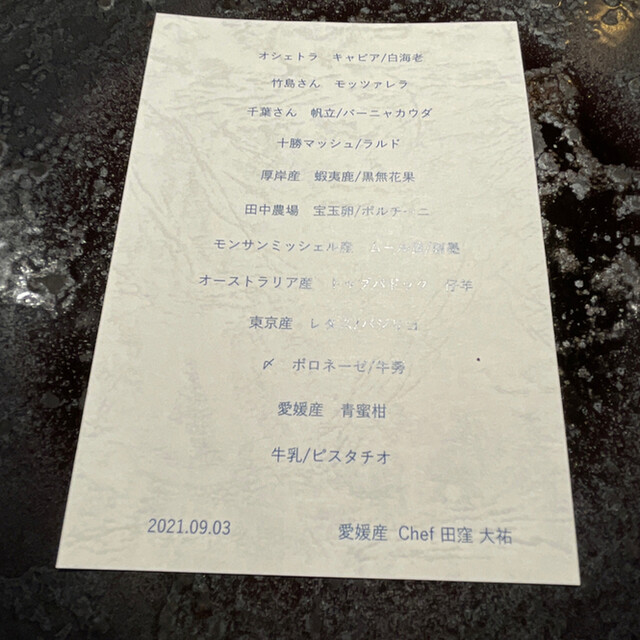 オシェトラ キャビア/白海老
竹島さん モッツァレラ
千葉さん 帆立/バーニャカウダ
十勝マッシュ/ラルド
厚岸産 蝦夷鹿/黒無花果
田中農場 宝玉卵/ポルチーニ
モンサンミッシェル産
オーストラリア産
東京産
〆 ボロネーゼ/牛秀
愛媛産 青蜜柑
牛乳/ピスタチオ
2021.09.03 愛媛産 Chef 田窪 大祐